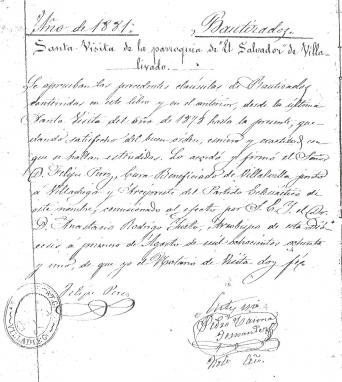 Año de 1881. Bautizados.
Santa Visita de la parroquia de "El Salvador" de Villa-
lizado.
Se aprueban las precedentes cláusulas de Bautizados
contenidas en este libro y en el anterior, desde la última
Santa Visita del año de 1878 hasta la presente, que-
dando satisfecho del buen orden, esmero y exactitud con
que se hallan estendidas. Lo acordó y firmó el Señor
D. Felipe Perez, Cura Beneficiado de Villalvilla junto
a Villadiego y Arcipreste del Partido Eclesiástico de
este nombre, comisionado al efecto por S.E.I. el Sr.
D. Anastasio Rodrigo Yusto, Arzobispo de esta Dió-
cesis a primero de Agosto de mil ochocientos ochenta
y uno, de que yo el Notario de Visita doy fé.
Felipe Perez
Ante mi
Pedro
Fernandez
Noto.